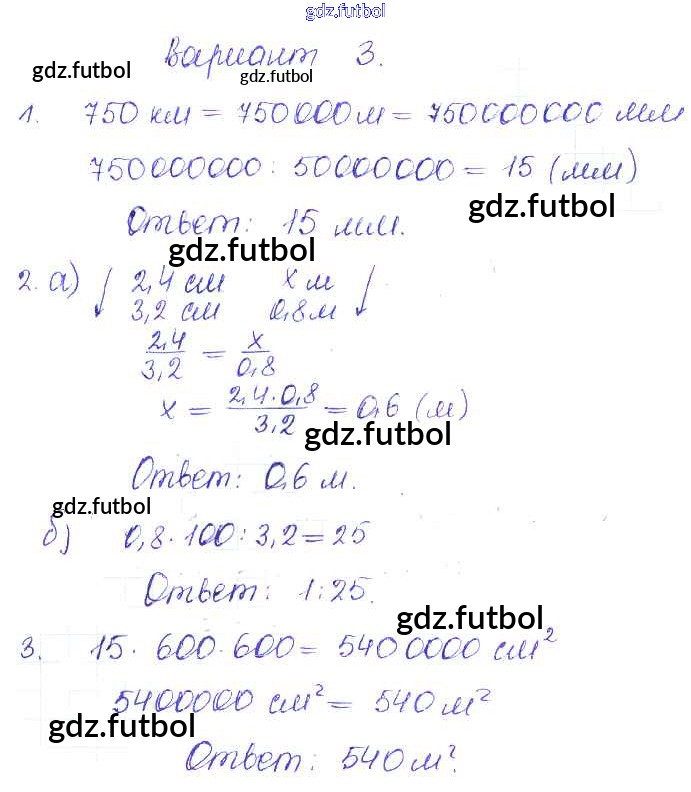 gdz.futbol
Вариант 3.
gdz.futbol gdz.futbol
1. 750 км = 750000 м = 750000000 мм
750000000 : 50000000 = 15 (мм)
gdz.futbol
Ответ: 15 мм.
gdz.futbol
2. а) ↓ 2,4 см x м ↓
3,2 см 0,8 м
2,4/3,2 = x/0,8
x = 2,4·0,8/3,2 = 0,6 (м)
gdz.futbol
Ответ: 0,6 м.
gdz.futbol
б) 0,8 · 100 : 3,2 = 25
Ответ: 1:25.
gdz.futbol
3. 15 · 600 · 600 = 5400000 см²
5400000 см² = 540 м²
gdz.futbol
Ответ: 540 м².